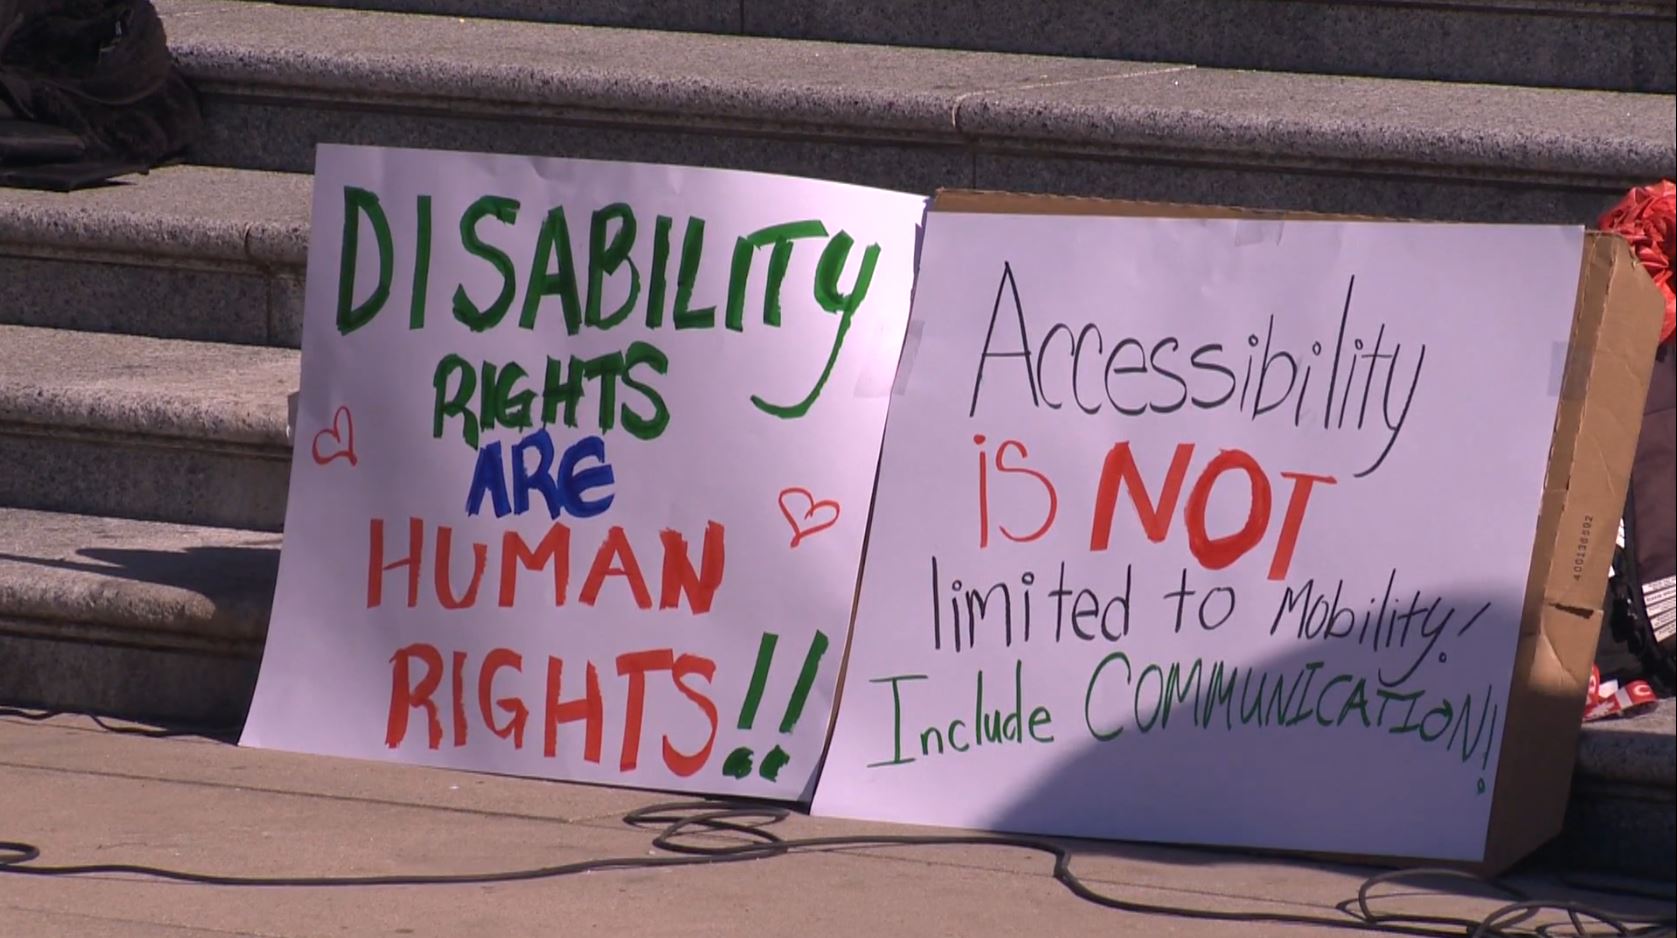 DISABILITY
RIGHTS
ARE
HUMAN
RIGHTS!!
Accessibility
is NOT
limited to Mobility!
Include COMMUNICATION!
400136592